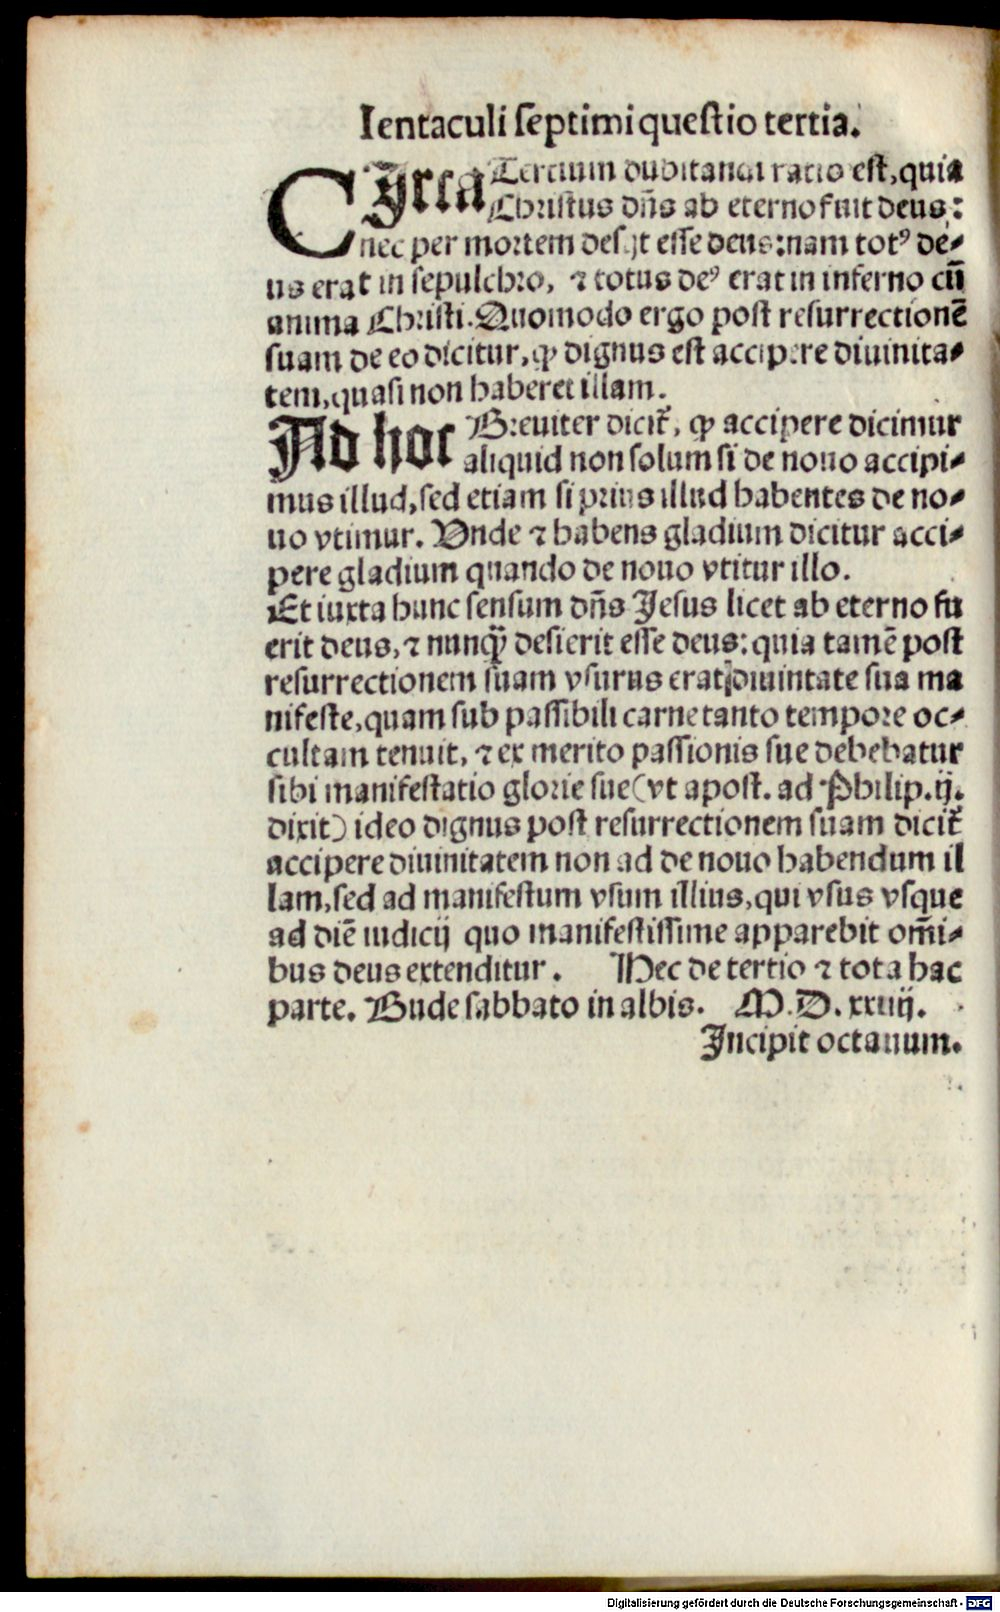 Ientaculi septimi questio tertia.
CIrca Tertium dubitandi ratio est, quia
Christus dn̄s ab eterno fuit deus:
nec per mortem desijt esse deus: nam totꝰ de⸗
us erat in sepulchro, ⁊ totus deꝰ erat in inferno cū
anima Christi. Quomodo ergo post resurrectionē
suam de eo dicitur, ꝙ dignus est accipere diuinita⸗
tem, quasi non haberet illam.
Ad hoc Breuiter dicit̄, ꝙ accipere dicimur
aliquid non solum si de nouo accipi⸗
mus illud, sed etiam si prius illud habentes de no⸗
uo vtimur. Vnde ⁊ habens gladium dicitur acci⸗
pere gladium quando de nouo vtitur illo.
Et iuxta hunc sensum dn̄s Jesus licet ab eterno fu
erit deus, ⁊ nunqꝫ̄ desierit esse deus: quia tamē post
resurrectionem suam vsurus erat diuintate sua ma
nifeste, quam sub passibili carne tanto tempore oc⸗
cultam tenuit, ⁊ ex merito passionis sue debebatur
sibi manifestatio glorie sue (vt apost. ad Philip. ij.
dixit) ideo dignus post resurrectionem suam dicit̄
accipere diuinitatem non ad de nouo habendum il
lam, sed ad manifestum vsum illius, qui vsus vsque
ad diē iudicij quo manifestissime apparebit om̄i⸗
bus deus extenditur. Hec de tertio ⁊ tota hac
parte. Bude sabbato in albis. M.D.xxiiij.
Incipit octauum.
Digitalisierung gefördert durch die Deutsche Forschungsgemeinschaft - DFG